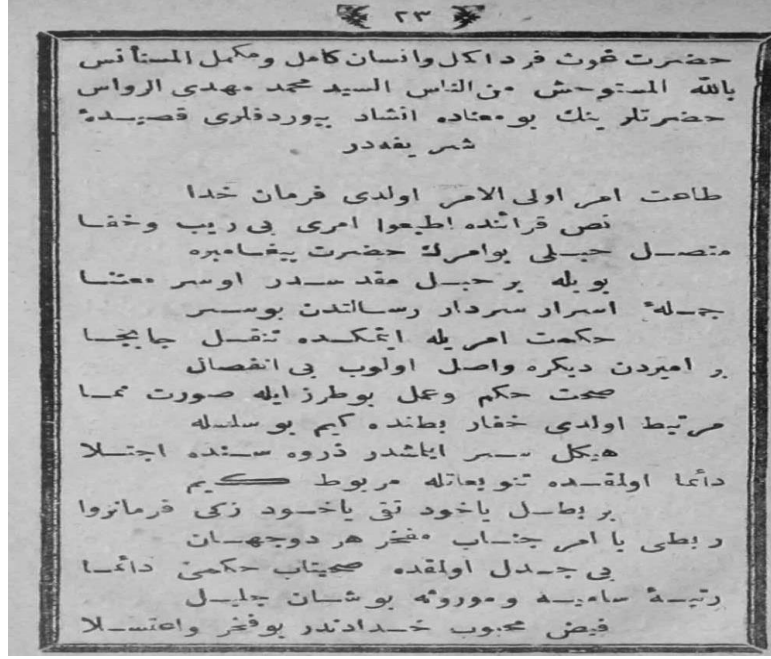 ٢٣
حضرت غوث فرد اكمل وانسان كامل ومكمل المستأنس
بالله المستوحش من الناس السيد محمد مهدى الرواس
حضرتلرينك بو معناده انشاد بيوردقلرى قصيدهٔ
شريفه در
طاعت امر اولى الامر اولدى فرمان خدا
نص قرآنده اطيعوا امرى بى ريب وخفا
متصل حبلى بوامرك حضرت پيغامبره
بويله بر حبل مقدسدر اوسر معتنا
جملهٔ اسرار سردار رسالتدن بوسر
حكمت امريله ايتمكده تنقل جابجا
بر اميردن ديكره واصل اولوب بى انفصال
صحت حكم وعمل بوطرز ايله صورت نما
مرتبط اولدى خفار بطنده كيم بو سلسله
هيكل سر ذروه سنده اجتلا
دائما اولمقده تنويعاتله مربوط كيم
بر بطل ياخود تقى ياخود زكى فرمانروا
ربطى با امر جناب مفخر هر دوجهان
بى جدل اولمقده حكمى دائما
رتبهٔ ساميه وموروثه بوشان جليل
فيض محبوب خدادندر بوفخر واعتلا